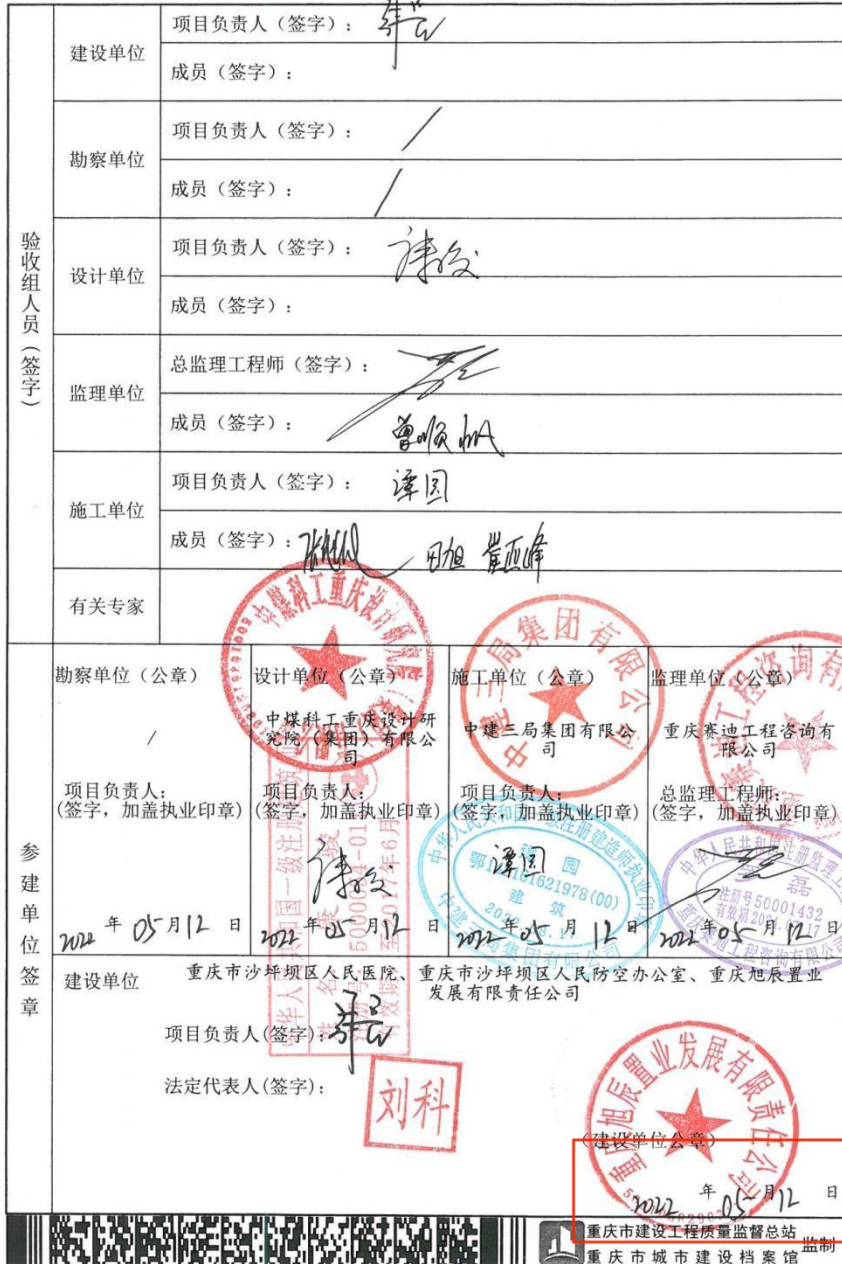 验收组人员（签字）
建设单位
项目负责人（签字）：
成员（签字）：
勘察单位
项目负责人（签字）： /
成员（签字）： /
设计单位
项目负责人（签字）：
成员（签字）：
监理单位
总监理工程师（签字）：
成员（签字）： 曾顺帆
施工单位
项目负责人（签字）： 谭园
成员（签字）： 田旭 崔亚峰
有关专家
参建单位签章
勘察单位（公章）
/
项目负责人：
(签字，加盖执业印章)
2022 年 05 月 12 日
设计单位（公章）
中煤科工重庆设计研
究院（集团）有限公
司
项目负责人：
(签字，加盖执业印章)
2022 年 05 月 12 日
施工单位（公章）
中建三局集团有限公
司
项目负责人：
(签字，加盖执业印章)
谭园
2022 年 05 月 12 日
监理单位（公章）
重庆赛迪工程咨询有
限公司
总监理工程师：
(签字，加盖执业印章)
2022 年 05 月 12 日
中建三局集团有限公司
注册号50001432
建设单位
重庆市沙坪坝区人民医院、重庆市沙坪坝区人民防空办公室、重庆旭辰置业
发展有限责任公司
项目负责人(签字)：
法定代表人(签字)：
刘科
重庆旭辰置业发展有限责任公司
（建设单位公章）
2022 年 05 月 12 日
重庆市建设工程质量监督总站
重庆市城市建设档案馆
监制